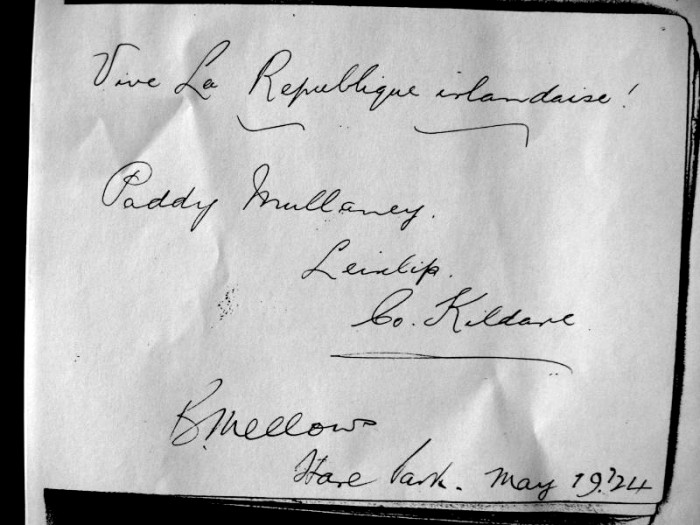 Vive La Republique irlandaise!
Paddy Mullaney.
Leixlip.
Co. Kildare
B. Mellows
Hare Park. May 19.'24